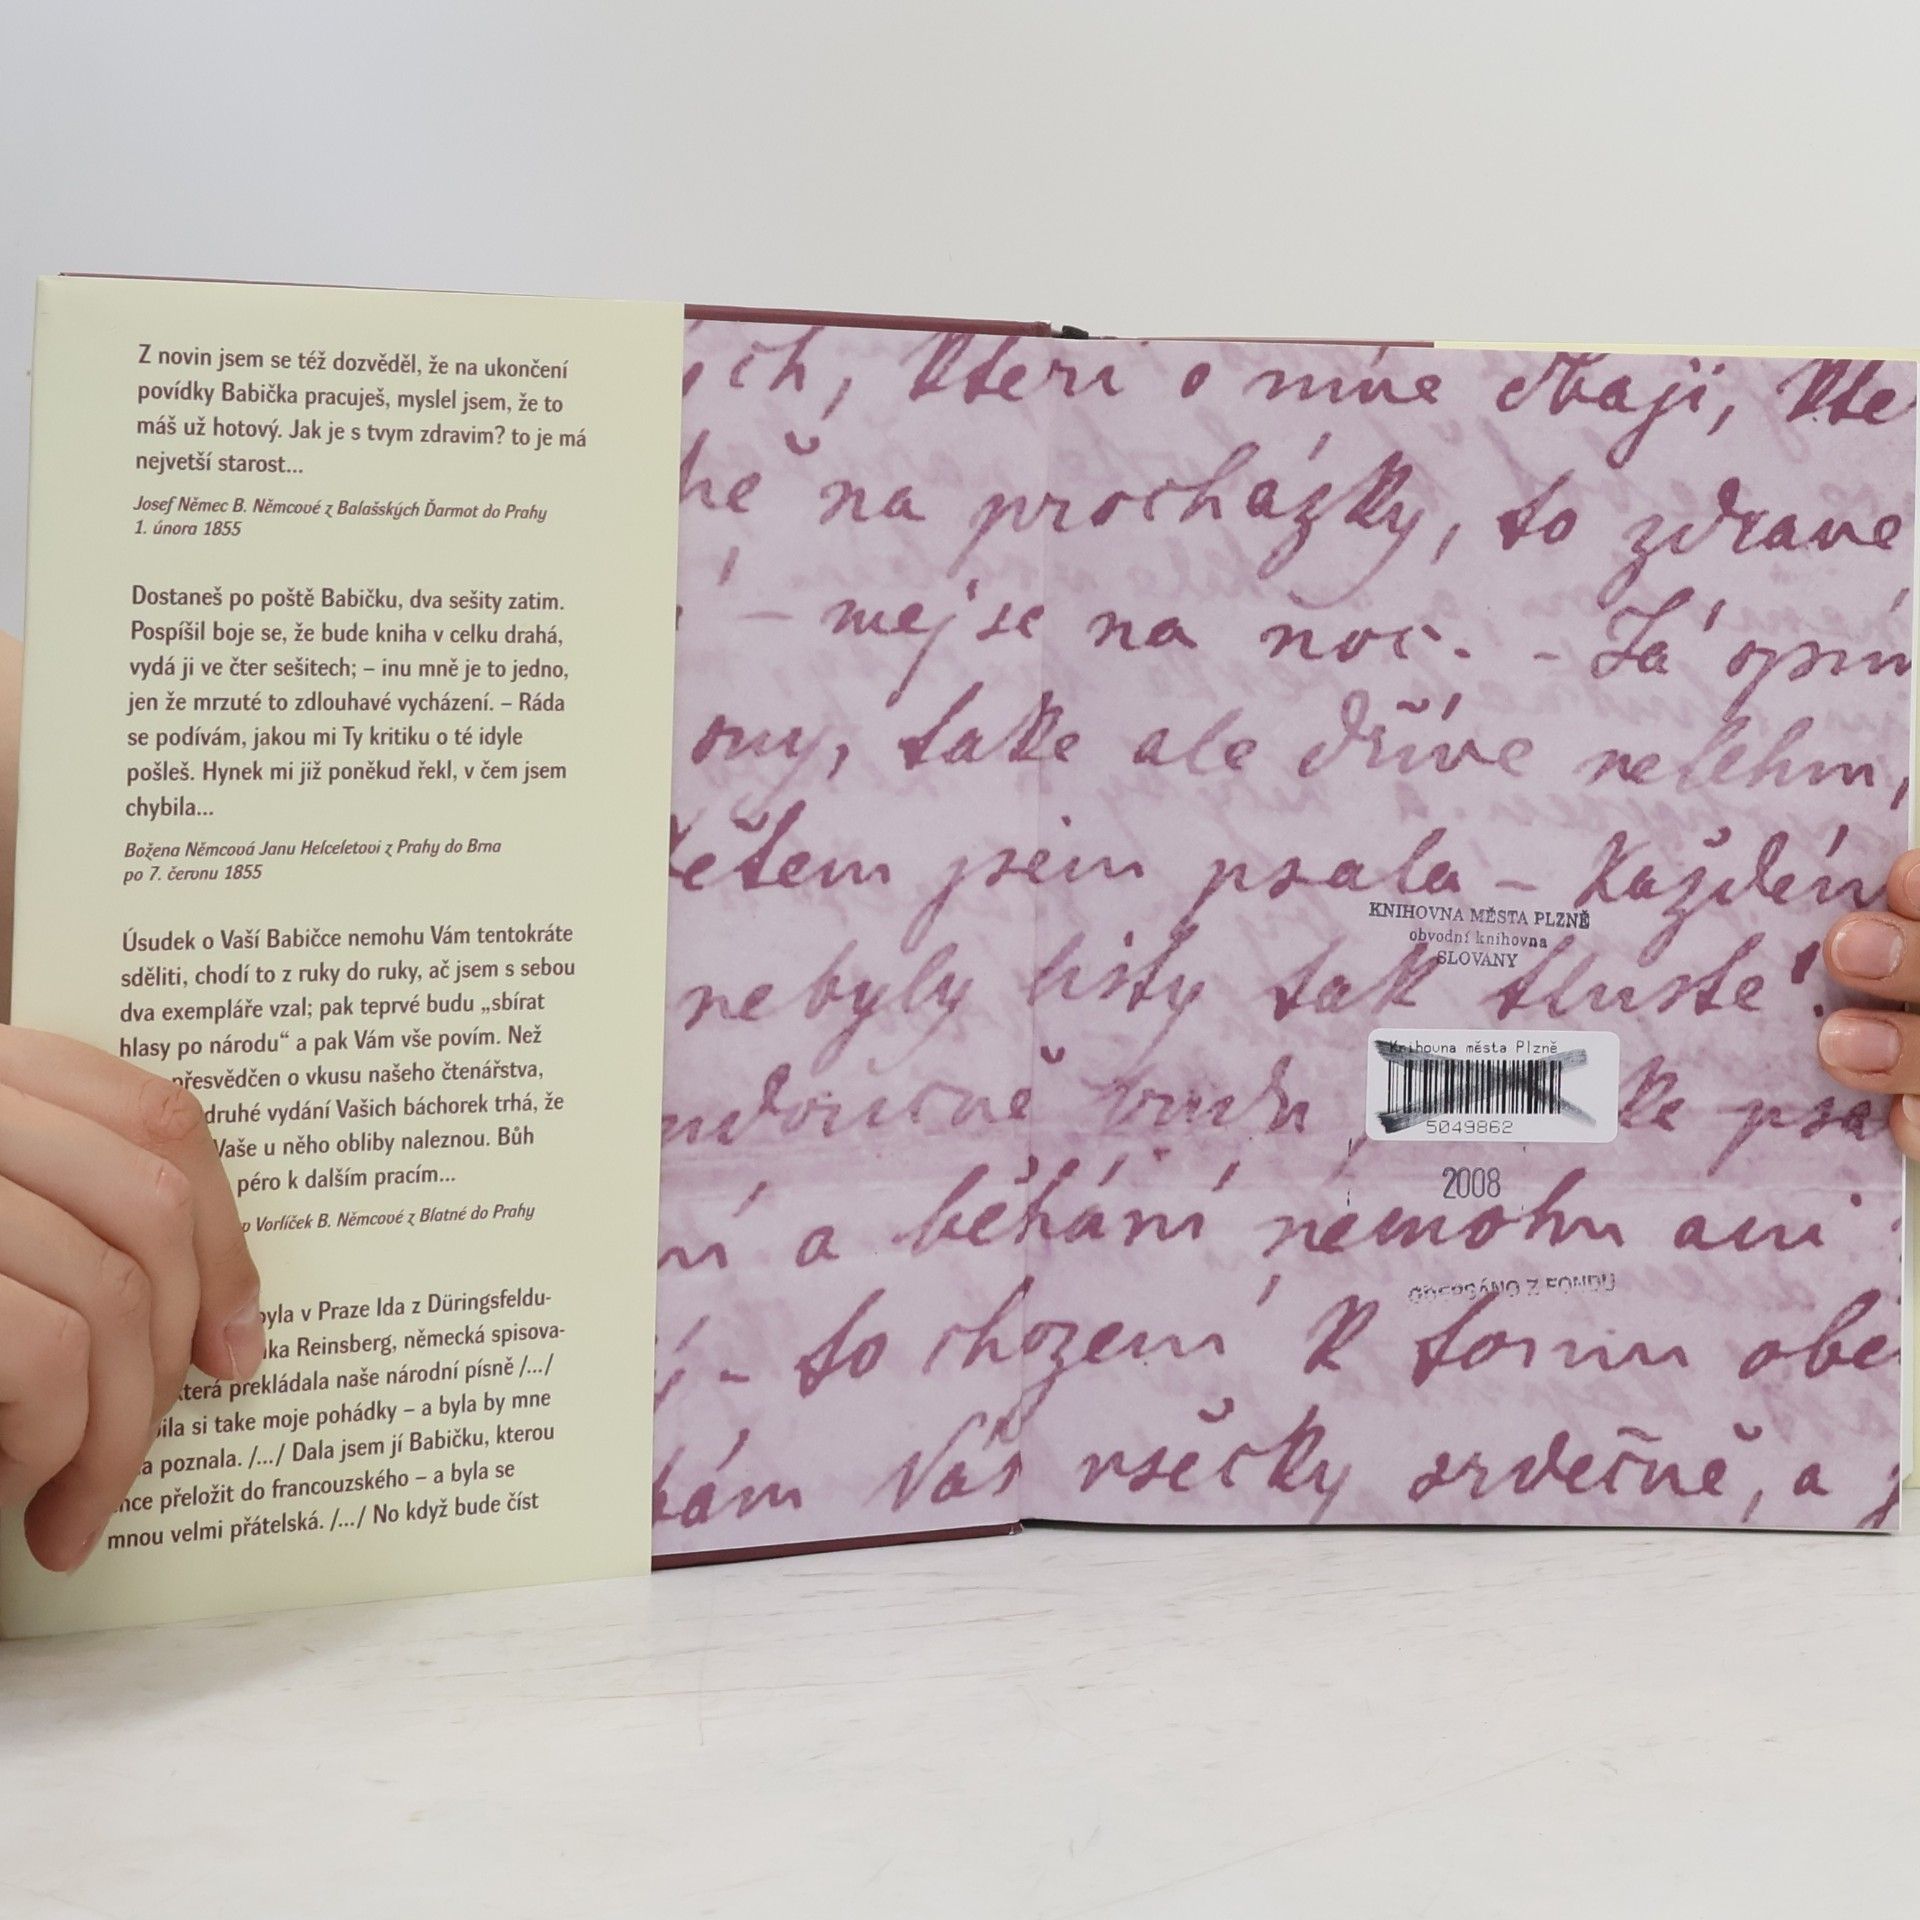 Z novin jsem se též dozvěděl, že na ukončení
povídky Babička pracuješ, myslel jsem, že to
máš už hotový. Jak je s tvym zdravim? to je má
nejvetší starost...
Josef Němec B. Němcové z Balašských Ďarmot do Prahy
1. února 1855
Dostaneš po poště Babičku, dva sešity zatim.
Pospíšil boje se, že bude kniha v celku drahá,
vydá ji ve čter sešitech; – inu mně je to jedno,
jen že mrzuté to zdlouhavé vycházení. – Ráda
se podívám, jakou mi Ty kritiku o té idyle
pošleš. Hynek mi již poněkud řekl, v čem jsem
chybila...
Božena Němcová Janu Helceletovi z Prahy do Brna
po 7. červnu 1855
Úsudek o Vaší Babičce nemohu Vám tentokráte
sděliti, chodí to z ruky do ruky, ač jsem s sebou
dva exempláře vzal; pak teprvé budu „sbírat
hlasy po národu“ a pak Vám vše povím. Než
přesvědčen o vkusu našeho čtenářstva,
druhé vydání Vašich báchorek trhá, že
Vaše u něho obliby naleznou. Bůh
péro k dalším pracím...
p Vorlíček B. Němcové z Blatné do Prahy
byla v Praze Ida z Düringsfeldu-
ka Reinsberg, německá spisova-
která prekládala naše národní písně /.../
ila si take moje pohádky – a byla by mne
a poznala. /.../ Dala jsem jí Babičku, kterou
chce přeložit do francouzského – a byla se
mnou velmi přátelská. /.../ No když bude číst
ých, kteri o mne dbaji, kte
na procházky, to zdrave
– mej se na noc. – Já
ony, take ale dříve nelehm,
Dětem jsem psala – Každém
nebyly listy tak tlusté!
budu psa
a běhání nemohu ani
– to chozeni k tomu obe
Vás všečky srdečně, a
KNIHOVNA MĚSTA PLZNĚ
obvodní knihovna
SLOVANY
Knihovna města Plzně
5049862
2008
ODEPSÁNO Z FONDU